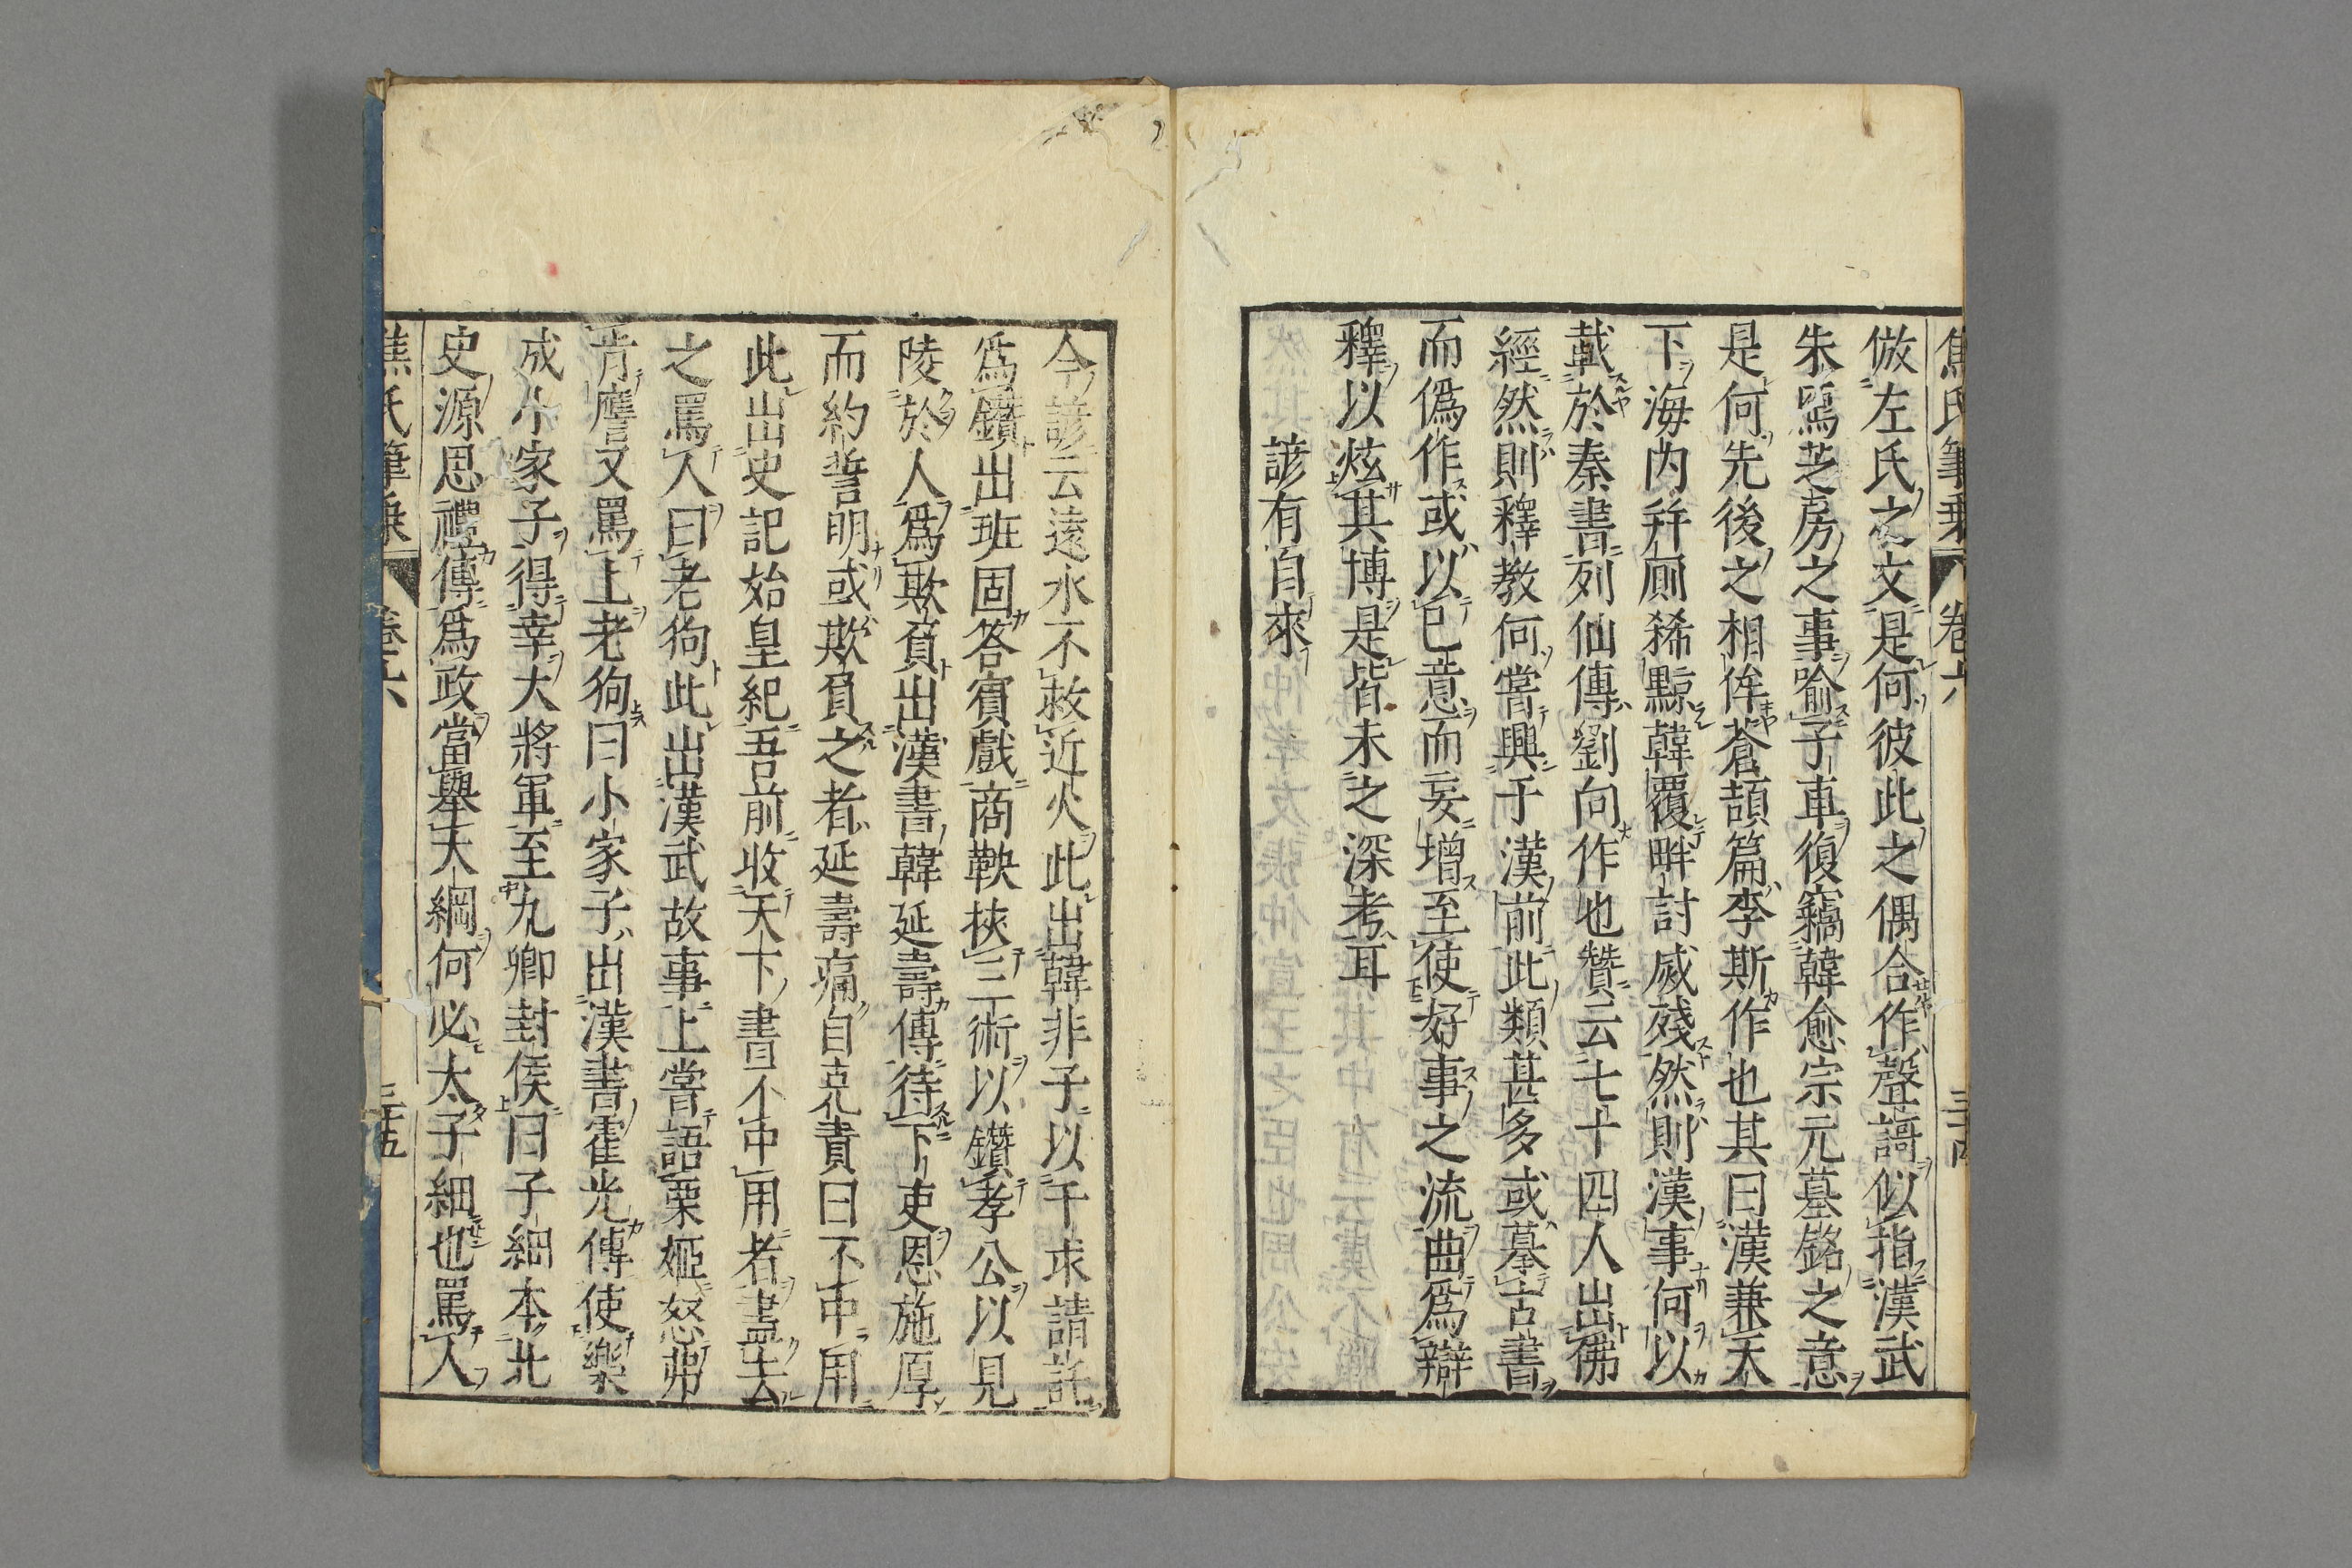 焦氏筆乗 卷六
倣左氏之文是何彼此之偶合作聲謌似指漢武
朱鳥芝房之事喻子車復竊韓愈宗元墓銘之意
是何先後之相侔蒼頡篇李斯作也其曰漢兼天
下海内并厠豨黥韓覆畔討滅殘然則漢事何以
載於秦書列仙傳劉向作也贊云七十四人出佛
經然則釋教何嘗興于漢前此類甚多或摹古書
而僞作或以已意而妄增至使好事之流曲爲辯
釋以炫其博是皆未之深考耳
諺有自來
今諺云遠水不救近火此出韓非子以干求請託
爲鑽出班固答賓戲商鞅挾三術以鑽孝公以見
陵於人爲欺負出漢書韓延壽傳待下吏恩施厚
而約誓明或欺負之者延壽痛自克責曰不中用
此出史記始皇紀吾前收天下書不中用者盡去
之罵人曰老狗此出漢武故事上嘗語栗姬怒弗
肯應又罵上老狗曰小家子出漢書霍光傳使樂
成小家子得幸大將軍至九卿封侯曰子細本北
史源思禮傳爲政當舉大綱何必太子細也罵人
焦氏筆乗 卷六 三十五